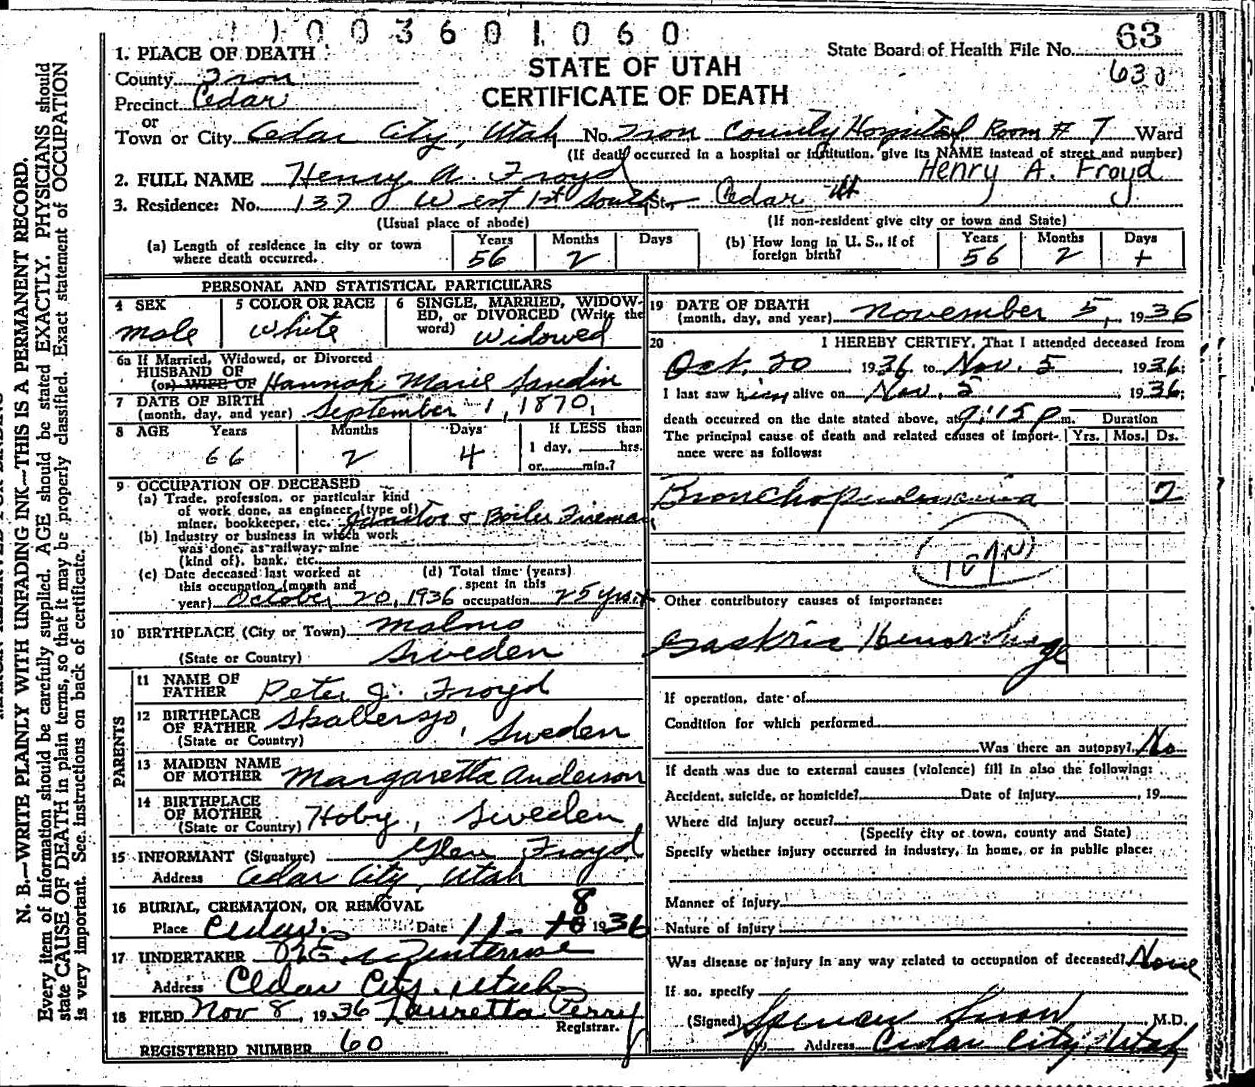 1003601060
1. PLACE OF DEATH
State Board of Health File No. 63
630
County Iron
STATE OF UTAH
Precinct Cedar
CERTIFICATE OF DEATH
or
Town or City Cedar City, Utah No. Iron County Hospital Room # 7 Ward
(If death occurred in a hospital or institution, give its NAME instead of street and number)
2. FULL NAME Henry A. Froyd Henry A. Froyd
3. Residence: No. 137 West 1st South St. Cedar Ut
(Usual place of abode) (If non-resident give city or town and State)
(a) Length of residence in city or town where death occurred. Years 56 Months 2 Days
(b) How long in U. S., if of foreign birth? Years 56 Months 2 Days +
PERSONAL AND STATISTICAL PARTICULARS
4 SEX male
5 COLOR OR RACE white
6 SINGLE, MARRIED, WIDOWED, or DIVORCED (Write the word) Widowed
6a If Married, Widowed, or Divorced
HUSBAND OF
(or) WIFE OF Hannah Marie Sandin
7 DATE OF BIRTH
(month, day, and year) September 1, 1870,
8 AGE Years 66 Months 2 Days 4 If LESS than 1 day, hrs. or min.?
9 OCCUPATION OF DECEASED
(a) Trade, profession, or particular kind
of work done, as engineer (type of)
miner, bookkeeper, etc. Janitor & Boiler Fireman
(b) Industry or business in which work
was done, as railway, mine
(kind of), bank, etc.
(c) Date deceased last worked at
this occupation (month and
year) October 20, 1936
(d) Total time (years)
spent in this
occupation 25 yrs +
10 BIRTHPLACE (City or Town) Malmo
(State or Country) Sweden
PARENTS
11 NAME OF
FATHER Peter J. Froyd
12 BIRTHPLACE
OF FATHER Skallersjo, Sweden
(State or Country)
13 MAIDEN NAME
OF MOTHER Margaretta Anderson
14 BIRTHPLACE
OF MOTHER
(State or Country) Hoby, Sweden
15 INFORMANT (Signature) Glen Froyd
Address Cedar City, Utah
16 BURIAL, CREMATION, OR REMOVAL
Place Cedar Date 11-8 1936
17 UNDERTAKER
Address Cedar City, Utah
18 FILED Nov 8, 1936 Lauretta Perry
Registrar.
REGISTERED NUMBER 60
19 DATE OF DEATH
(month, day, and year) November 5, 1936
20 I HEREBY CERTIFY, That I attended deceased from
Oct. 20 1936 to Nov. 5 1936;
I last saw him alive on Nov. 5 1936;
death occurred on the date stated above, at 9:15 P m. Duration
The principal cause of death and related causes of importance were as follows: Yrs. Mos. Ds.
Bronchopneumonia 7
Other contributory causes of importance:
Gastric Hemorrhage
If operation, date of
Condition for which performed
Was there an autopsy? No
If death was due to external causes (violence) fill in also the following:
Accident, suicide, or homicide? Date of injury , 19
Where did injury occur?
(Specify city or town, county and State)
Specify whether injury occurred in industry, in home, or in public place:
Manner of injury
Nature of injury
Was disease or injury in any way related to occupation of deceased? None
If so, specify
(Signed) M.D.
19 Address Cedar City, Utah
N. B.—WRITE PLAINLY WITH UNFADING INK—THIS IS A PERMANENT RECORD.
Every item of information should be carefully supplied. AGE should be stated EXACTLY. PHYSICIANS should
state CAUSE OF DEATH in plain terms, so that it may be properly classified. Exact statement of OCCUPATION
is very important. See instructions on back of certificate.